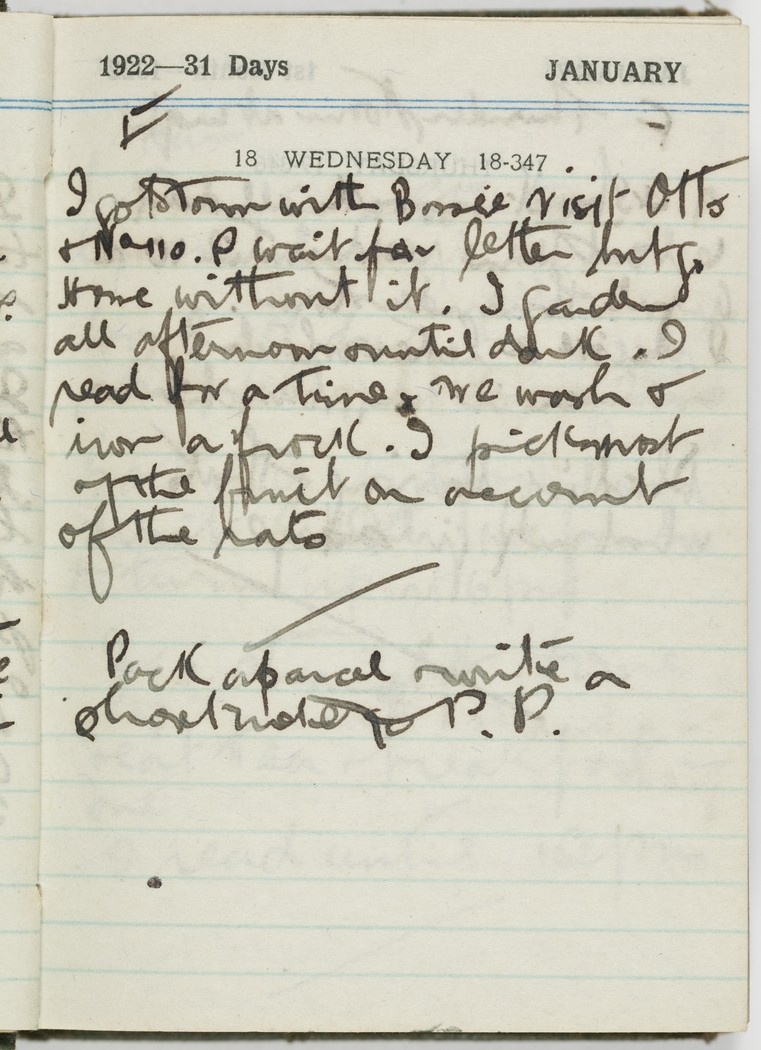 1922—31 Days JANUARY
18 WEDNESDAY 18-347
I go to Town with Bossie visit Otto
& Nano. I wait for letter but go
Home without it. I garden
all afternoon until dark. I
read for a time, we wash &
iron a frock. I pick most
of the fruit on account
of the rats
Pack a parcel & write a
short note to P. P.